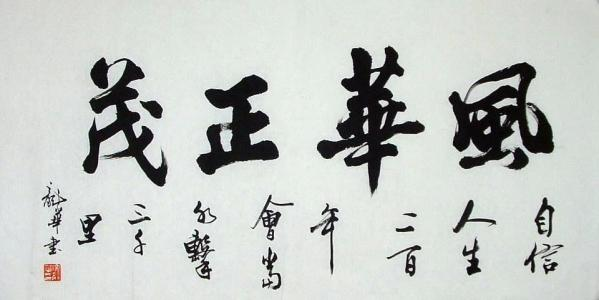 風華正茂
自信
人生
二百
年
會當
水擊
三千
里
華書